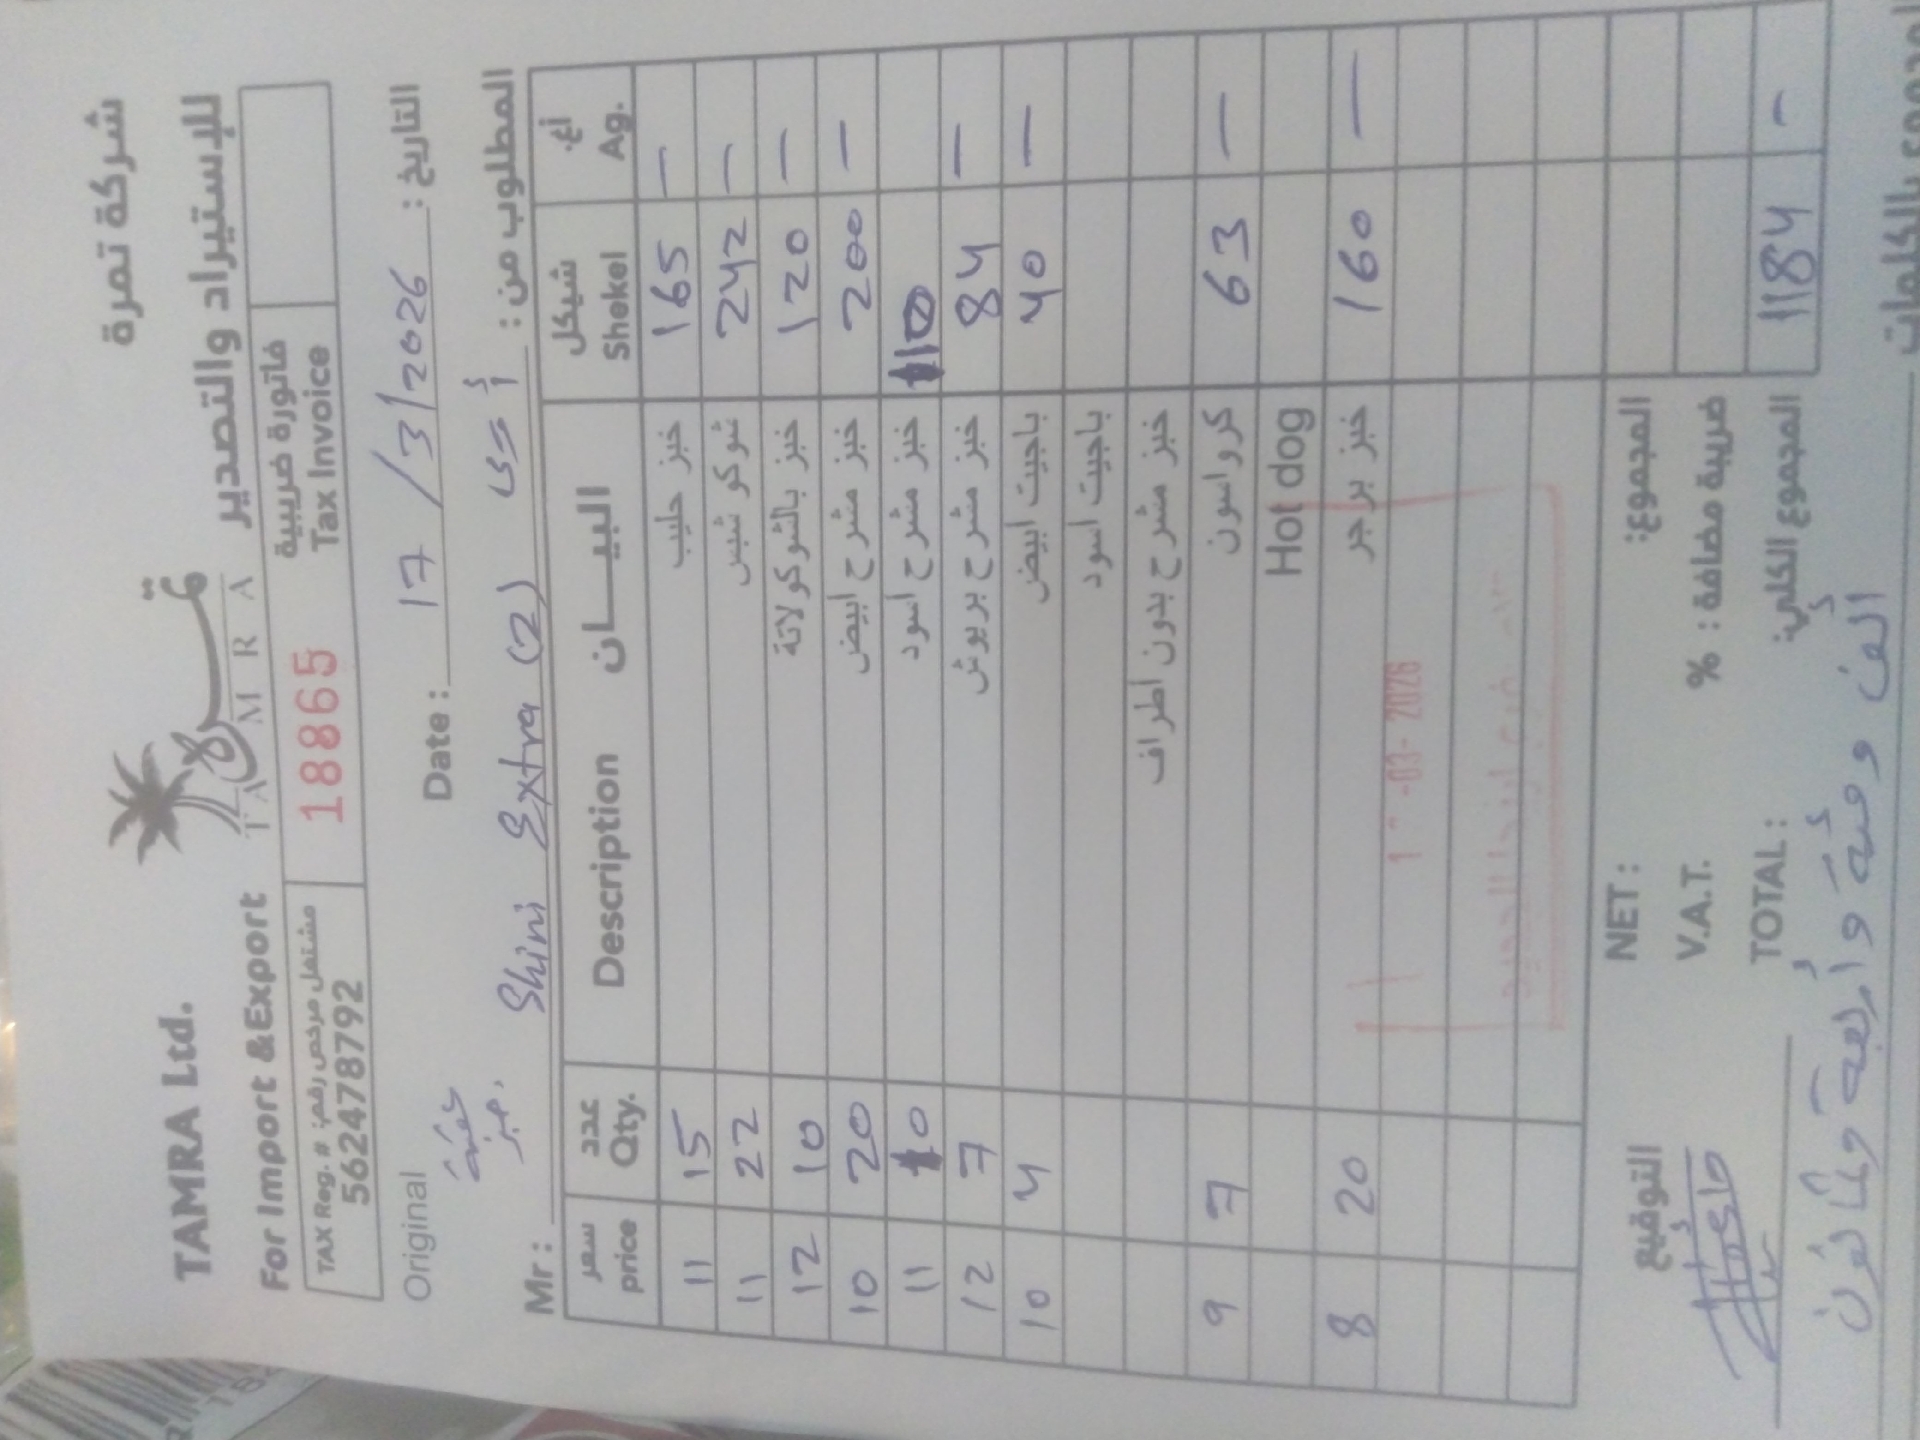 TAMRA Ltd.
شركة تمرة
For Import & Export
TAMRA
تمرة
للإستيراد والتصدير
TAX Reg. # :مشتغل مرخص رقم
562478792
18865
فاتورة ضريبية
Tax Invoice
Original
Date : 17/3/2026 : التاريخ
Mr : Shini Extra (2) : المطلوب من
سعر price عدد Qty. Description البيــان شيكل Shekel أغ. Ag.
11 15 خبز حليب 165 —
11 22 شوكو شبس 242 —
12 10 خبز بالشوكولاتة 120 —
10 20 خبز مشرح ابيض 200 —
11 10 خبز مشرح اسود 110
12 7 خبز مشرح بريوش 84 —
10 4 باجيت ابيض 40 —
باجيت اسود
خبز مشرح بدون اطراف
9 7 كرواسون 63 —
Hot dog
8 20 خبز برجر 160 —
-03- 2026
التوقيع
NET : المجموع:
V.A.T. % : ضريبة مضافة
TOTAL : المجموع الكلي: 1184 -
الف ومئة وأربعة وثمانون
المجموع بالكلمات